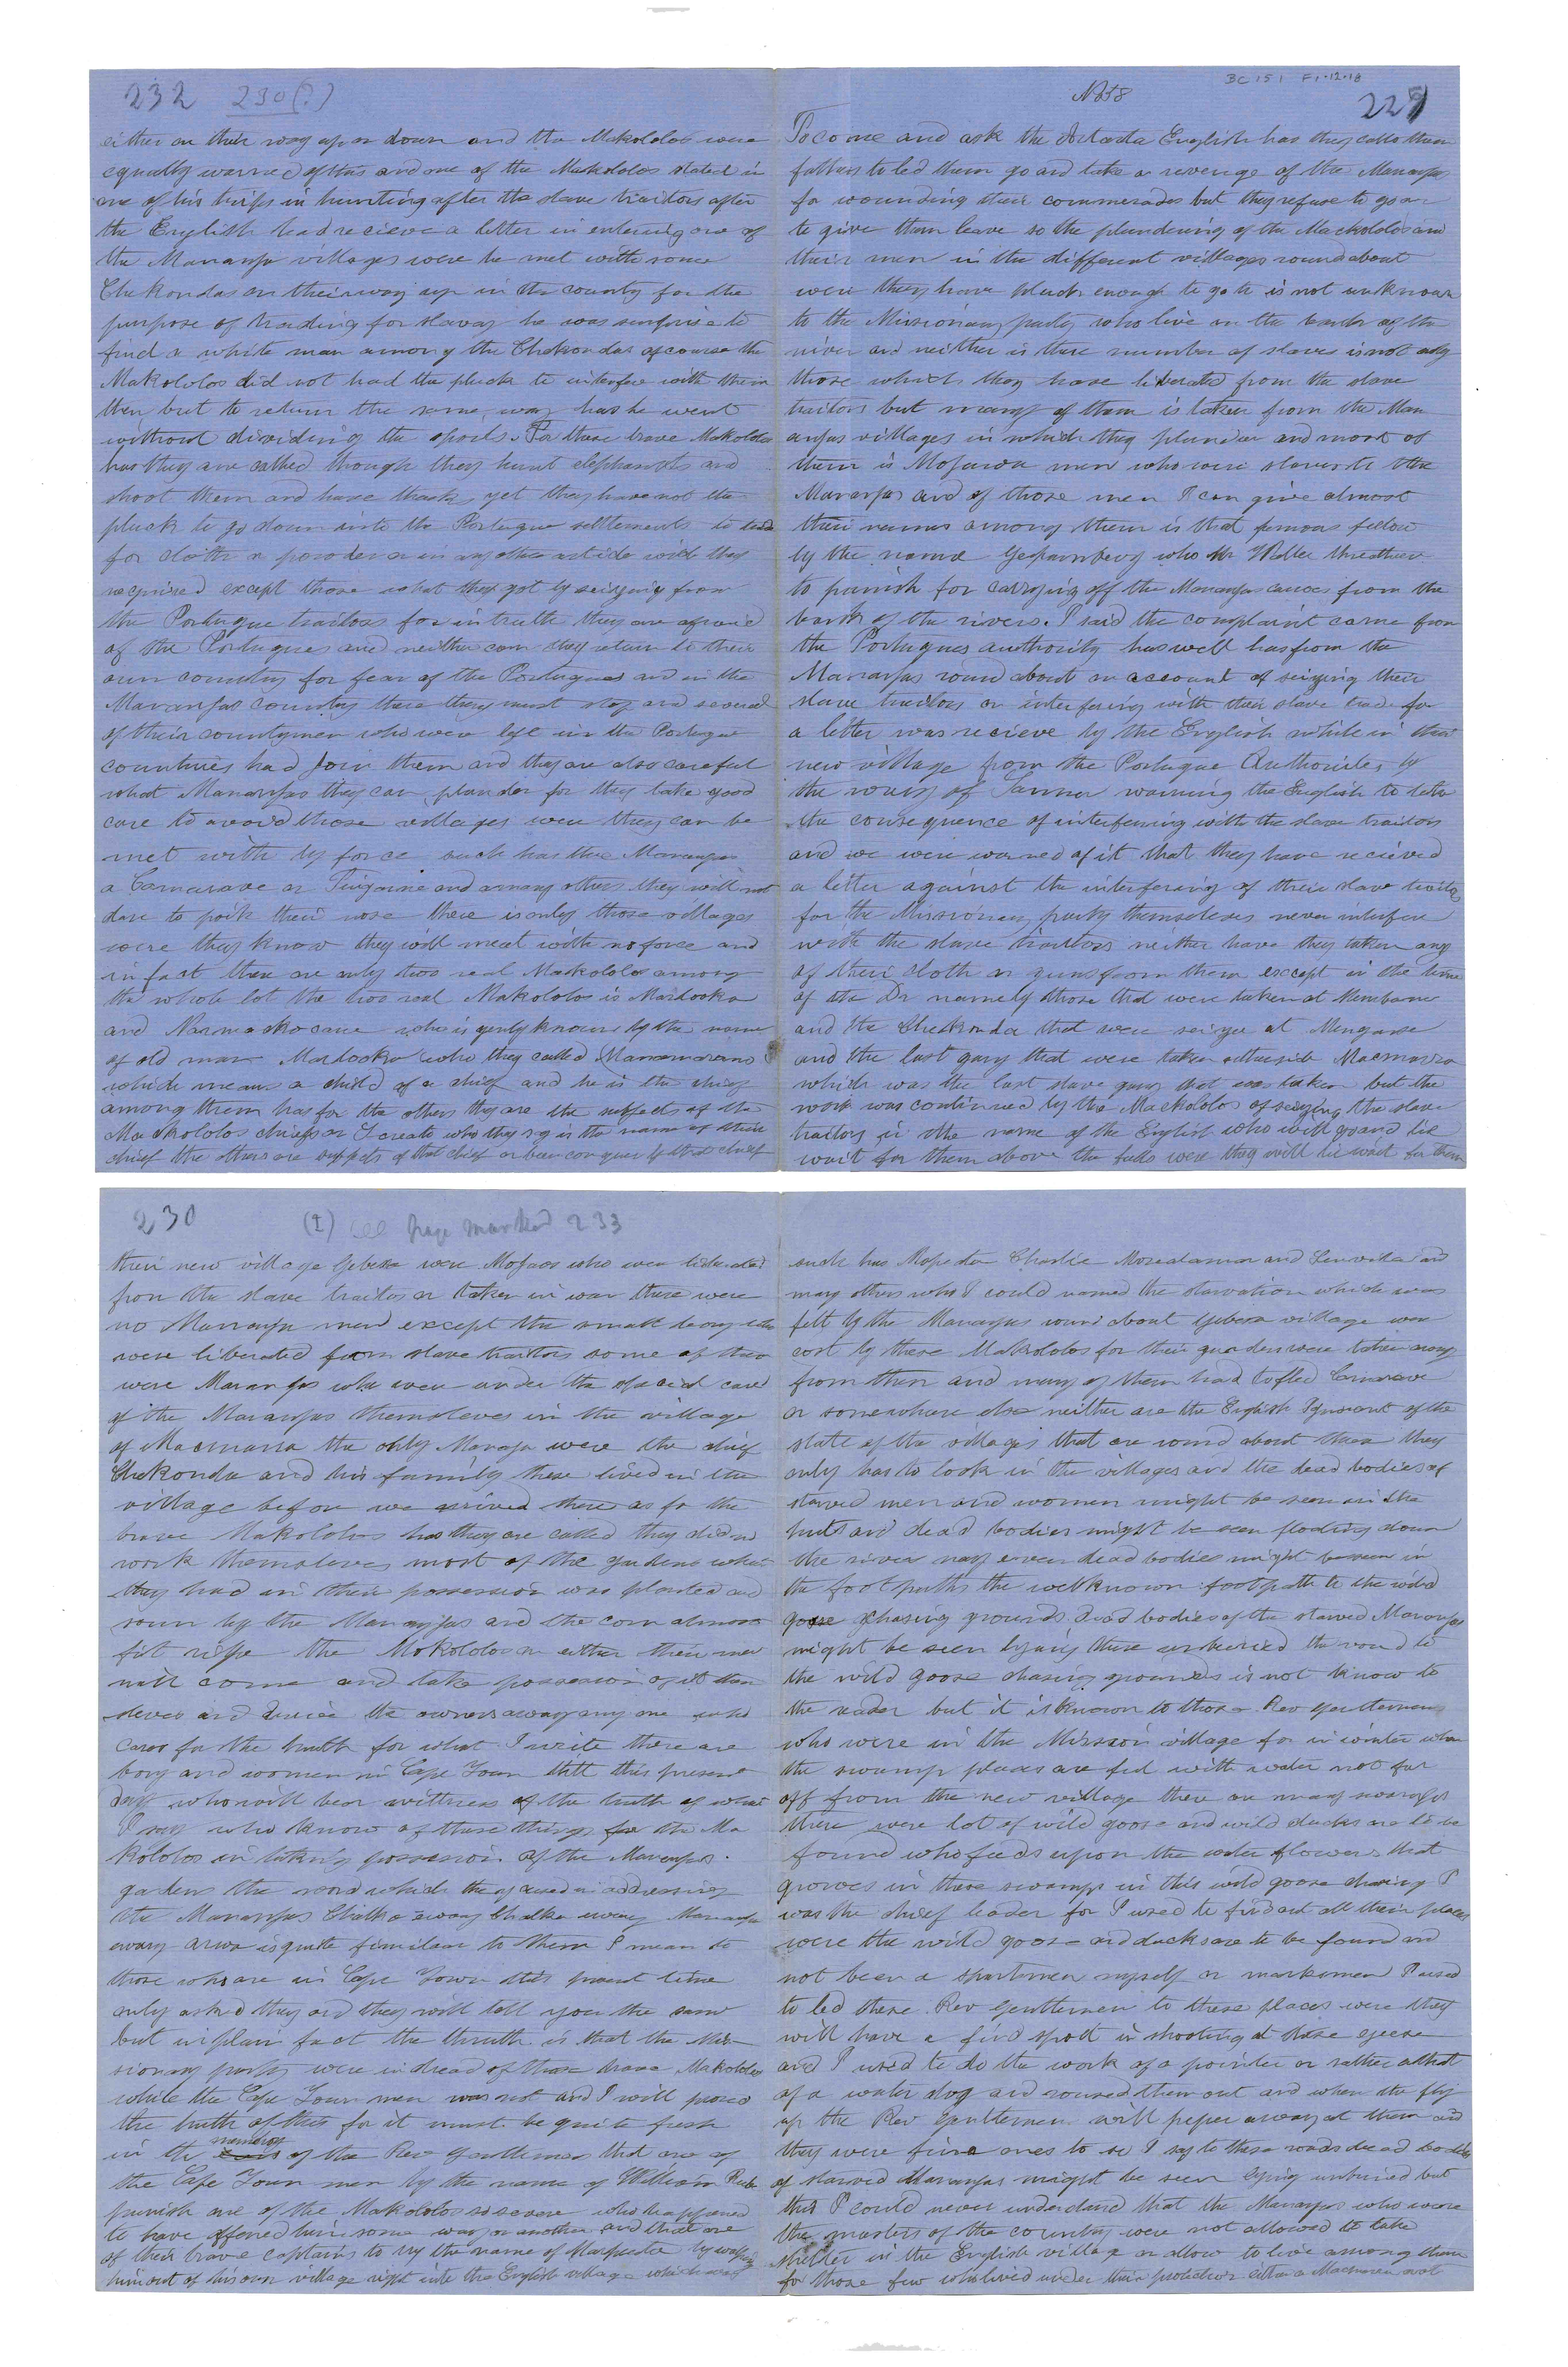 232 230(?)
either on their way up or down and the Makololos were
equally warned of this and one of the Makololos stated in
one of his trips in hunting after the slave traitors after
the English had recieve a letter in entering one of
the Mananja villages were he met with some
Chekondas on their way up in the county for the
purpose of trading for slaves he was surprise to
find a white man among the Chekondas of course the
Makololos did not had the pluck to interfere with them
then but to return the same way has he went
without dividing the spoils. For these brave Makololos
has they are called though they hunt elephants and
shoot them and have thanks yet they have not the
pluck to go down into the Portugue settlements to
for cloth or powder or in any other article wich they
required except those what they got by seizging from
the Portugue traitors for in truth they are afraid
of the Portugues and neither can they return to their
own country for fear of the Portugues and in the
Mananjas country there they must stop and several
of their countrymen who were left in the Portugue
countries had Join them and they are also careful
what Mananjas they can plunder for they take good
care to avoid those villages were they can be
met with by force such has the Mananjas
a Camarave or Tinganie and among others they will not
dare to poik their nose there is only those villages
were they know they will meet with no force and
in fact there are only two real Makololos among
the whole lot the two real Makololos is
and who is genly known by the name
of old man who they called
which means a child of a chief and he is the chief
among them has for the others they are the subjects of the
Mackololos chiefs or I create who they say is the name of their
chief the others are subjects of that chief or been conquer by that chief
No 58
BC 151 F1.12.18
229
To come and ask the English has they calls them
fathers to led them go and take a revenge of the Mananjas
for wounding their commerades but they refuse to go or
to give them leave so the plundering of the Mackololos and
their men in the different villages round about
were they have pluck enough to go to is not unknown
to the Missionary party who live on the banks of the
river and neither is there number of slaves is not only
those which they have liberated from the slave
traitors but many of them is taken from the Man
anjas villages in which they plunder and most of
them is Mojawa men who were slaves to the
Mananjas and of those men I can give almost
their names among them is that famous fellow
by the name who Mr Waller threathen
to punish for carrying off the Mananjas canoes from the
bank of the rivers. I said the complaint came from
the Portugues authority has well has from the
Mananjas round about on account of seizging their
slave traitors or interfering with their slave trade for
a letter was recieve by the English while in their
new village from the Portugue Authorites by
the way of warning the English to
the consequence of interferring with the slave traitors
and we were warned of it that they have recieved
a letter against the interfering of their slave traitors
for the Missionary party themseleves never interfere
with the slave traitors neither have they taken any
of their cloth or guns from them except in the time
of the Dr namely those that were taken at
and the Chekonda that were seizge at
and the last gang that were taken
which was the last slave gang that was taken but the
work was continued by the Mackololos of seizging the slave
traitors in the name of the English who will go and lie
wait for them above the falls were they will lie wait for them
230 (I) page marked 233
their new village were who were liberated
from the slave traitors or taken in war there were
no Mananja men except the small boys who
were liberated from slave traitors some of them
were Mananjas who were under the special care
of the Mananjas themsleves in the village
of the only Mananja were the chief
Chekonda and his family these lived in the
village before we arrived there as for the
brave Makololos has they are called they did no
work themsleves most of the gardens what
they had in their possession was planted and
sown by the Mananjas and the corn almost
fit ripe the Mokololos or either their men
will come and take possession of it them
sleves and the owners away any one who
cares for the truth for what I write there are
boys and women in Cape Town still this present
day who will bear wittness of the truth of what
I say who know of these things for the Ma
kololos in taking possession of the Mananjas.
gardens the word which they used in addressing
the Mananjas Chalka away Mananja
is quite fimilar to them I mean to
those who are in Cape Town this present time
only asked they and they will tell you the same
but in plain fact the thruth is that the Mis-
sionary party were in dread of these brave Makololos
while the Cape Town men was not and I will proved
the truth of this for it must be quite fresh
in the memory of the Rev gentlemen that one of
the Cape Town men by the name of William
punish one of the Makololos so severe who happened
to have offened him some way or another and that one
of their brave captains to by the name of by
him out of his own village right into the English village which was
such has Charlie and and
many others who I could named the starvation which was
felt by the Mananjas round about village were
cost by these Makololos for their gardens were taken away
from them and many of them had to fled
or somewhere else neither are the English Ignorant of the
state of the villages that are round about them they
only has to look in the villages and the dead bodies of
starved men and women might be seen in the
huts and dead bodies might be seen floding down
the river nay even dead bodies might be seen in
the foot paths the well known foot path to the wild
goose chasing grounds dead bodies of the starved Mananjas
might be seen lying there unburied the road to
the wild goose chasing grounds is not know to
the reader but it is known to those Rev gentlemen
who were in the Mission village for in winter when
the swamp places are full with water not far
off from the new village there are many swamps
there were lot of wild goose and wild ducks are to be
found who feeds upon the water flowers that
grows in these swamps in this wild goose chasing I
was the chief leader for I used to find out all their places
were the wild goose and ducks are to be found and
not been a sportsmen myself or marksmen I used
to led these Rev Gentlemen to these places were they
will have a find spott in shooting at those geese
and I used to do the work of a pointer or rather a that
of a water dog and roused them out and when the fly
up the Rev gentlemen will peper away at them and
they were fine ones to so I say to these roads dead bodies
of starved Mananjas might be seen lying unburied but
this I could never understand that the Mananjas who were
the masters of the country were not allowed to take
shelter in the English village or allow to live among them
for those few who lived under their protection either a not